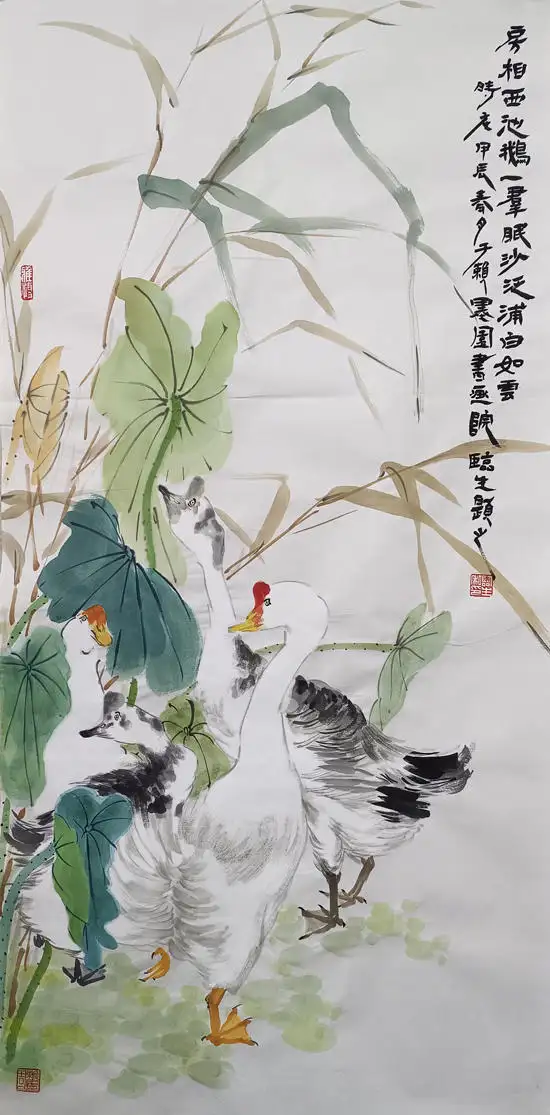 房相西池鹅一群眠沙泛浦白如雲
時在甲辰春月于籁墨園書畫院臨生題之